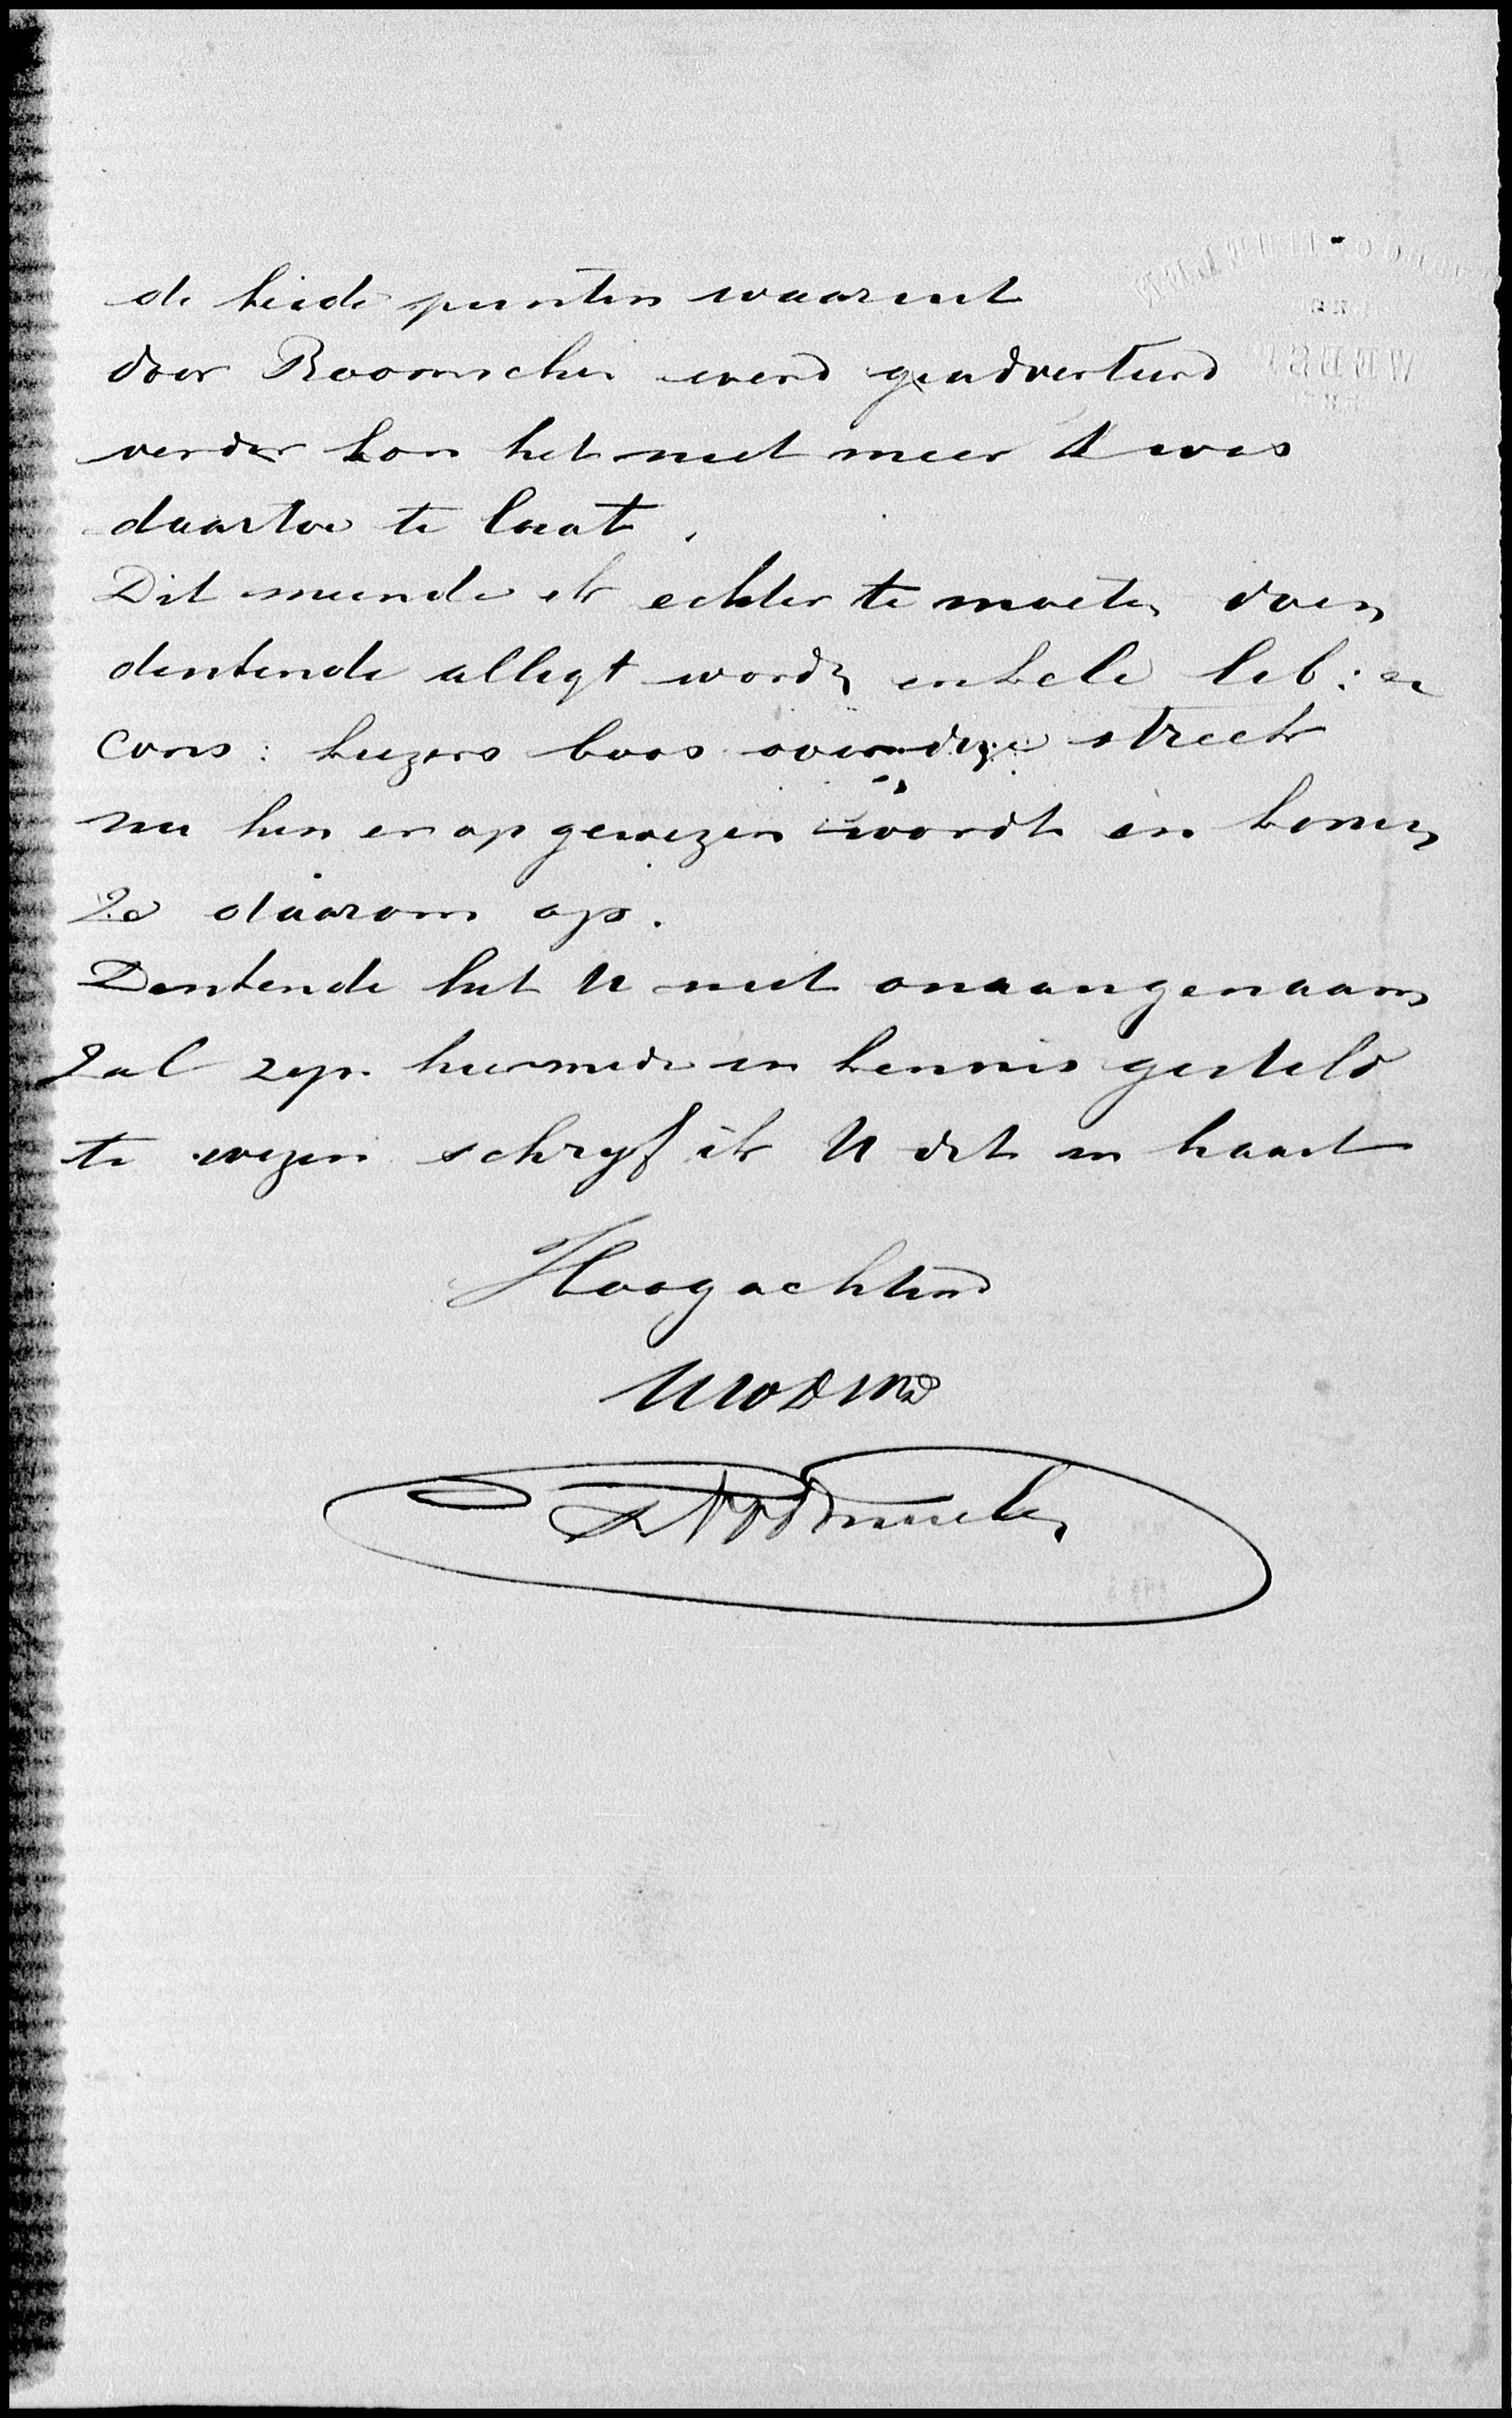 de beide punten waaruit
door Roomschen werd geadverteerd
verder kon het niet meer 't was
daartoe te laat.
Dit meende ik echter te moeten doen
denkende alligt worden enkele lib: en
cons: kiezers boos over deze streek
nu hen er op gewezen wordt en komen
ze daarom op.
Denkende het U niet onaangenaam
zal zijn hiermede in kennis gesteld
te wezen schrijf ik U dit in haast
Hoogachtend
UWEDWD